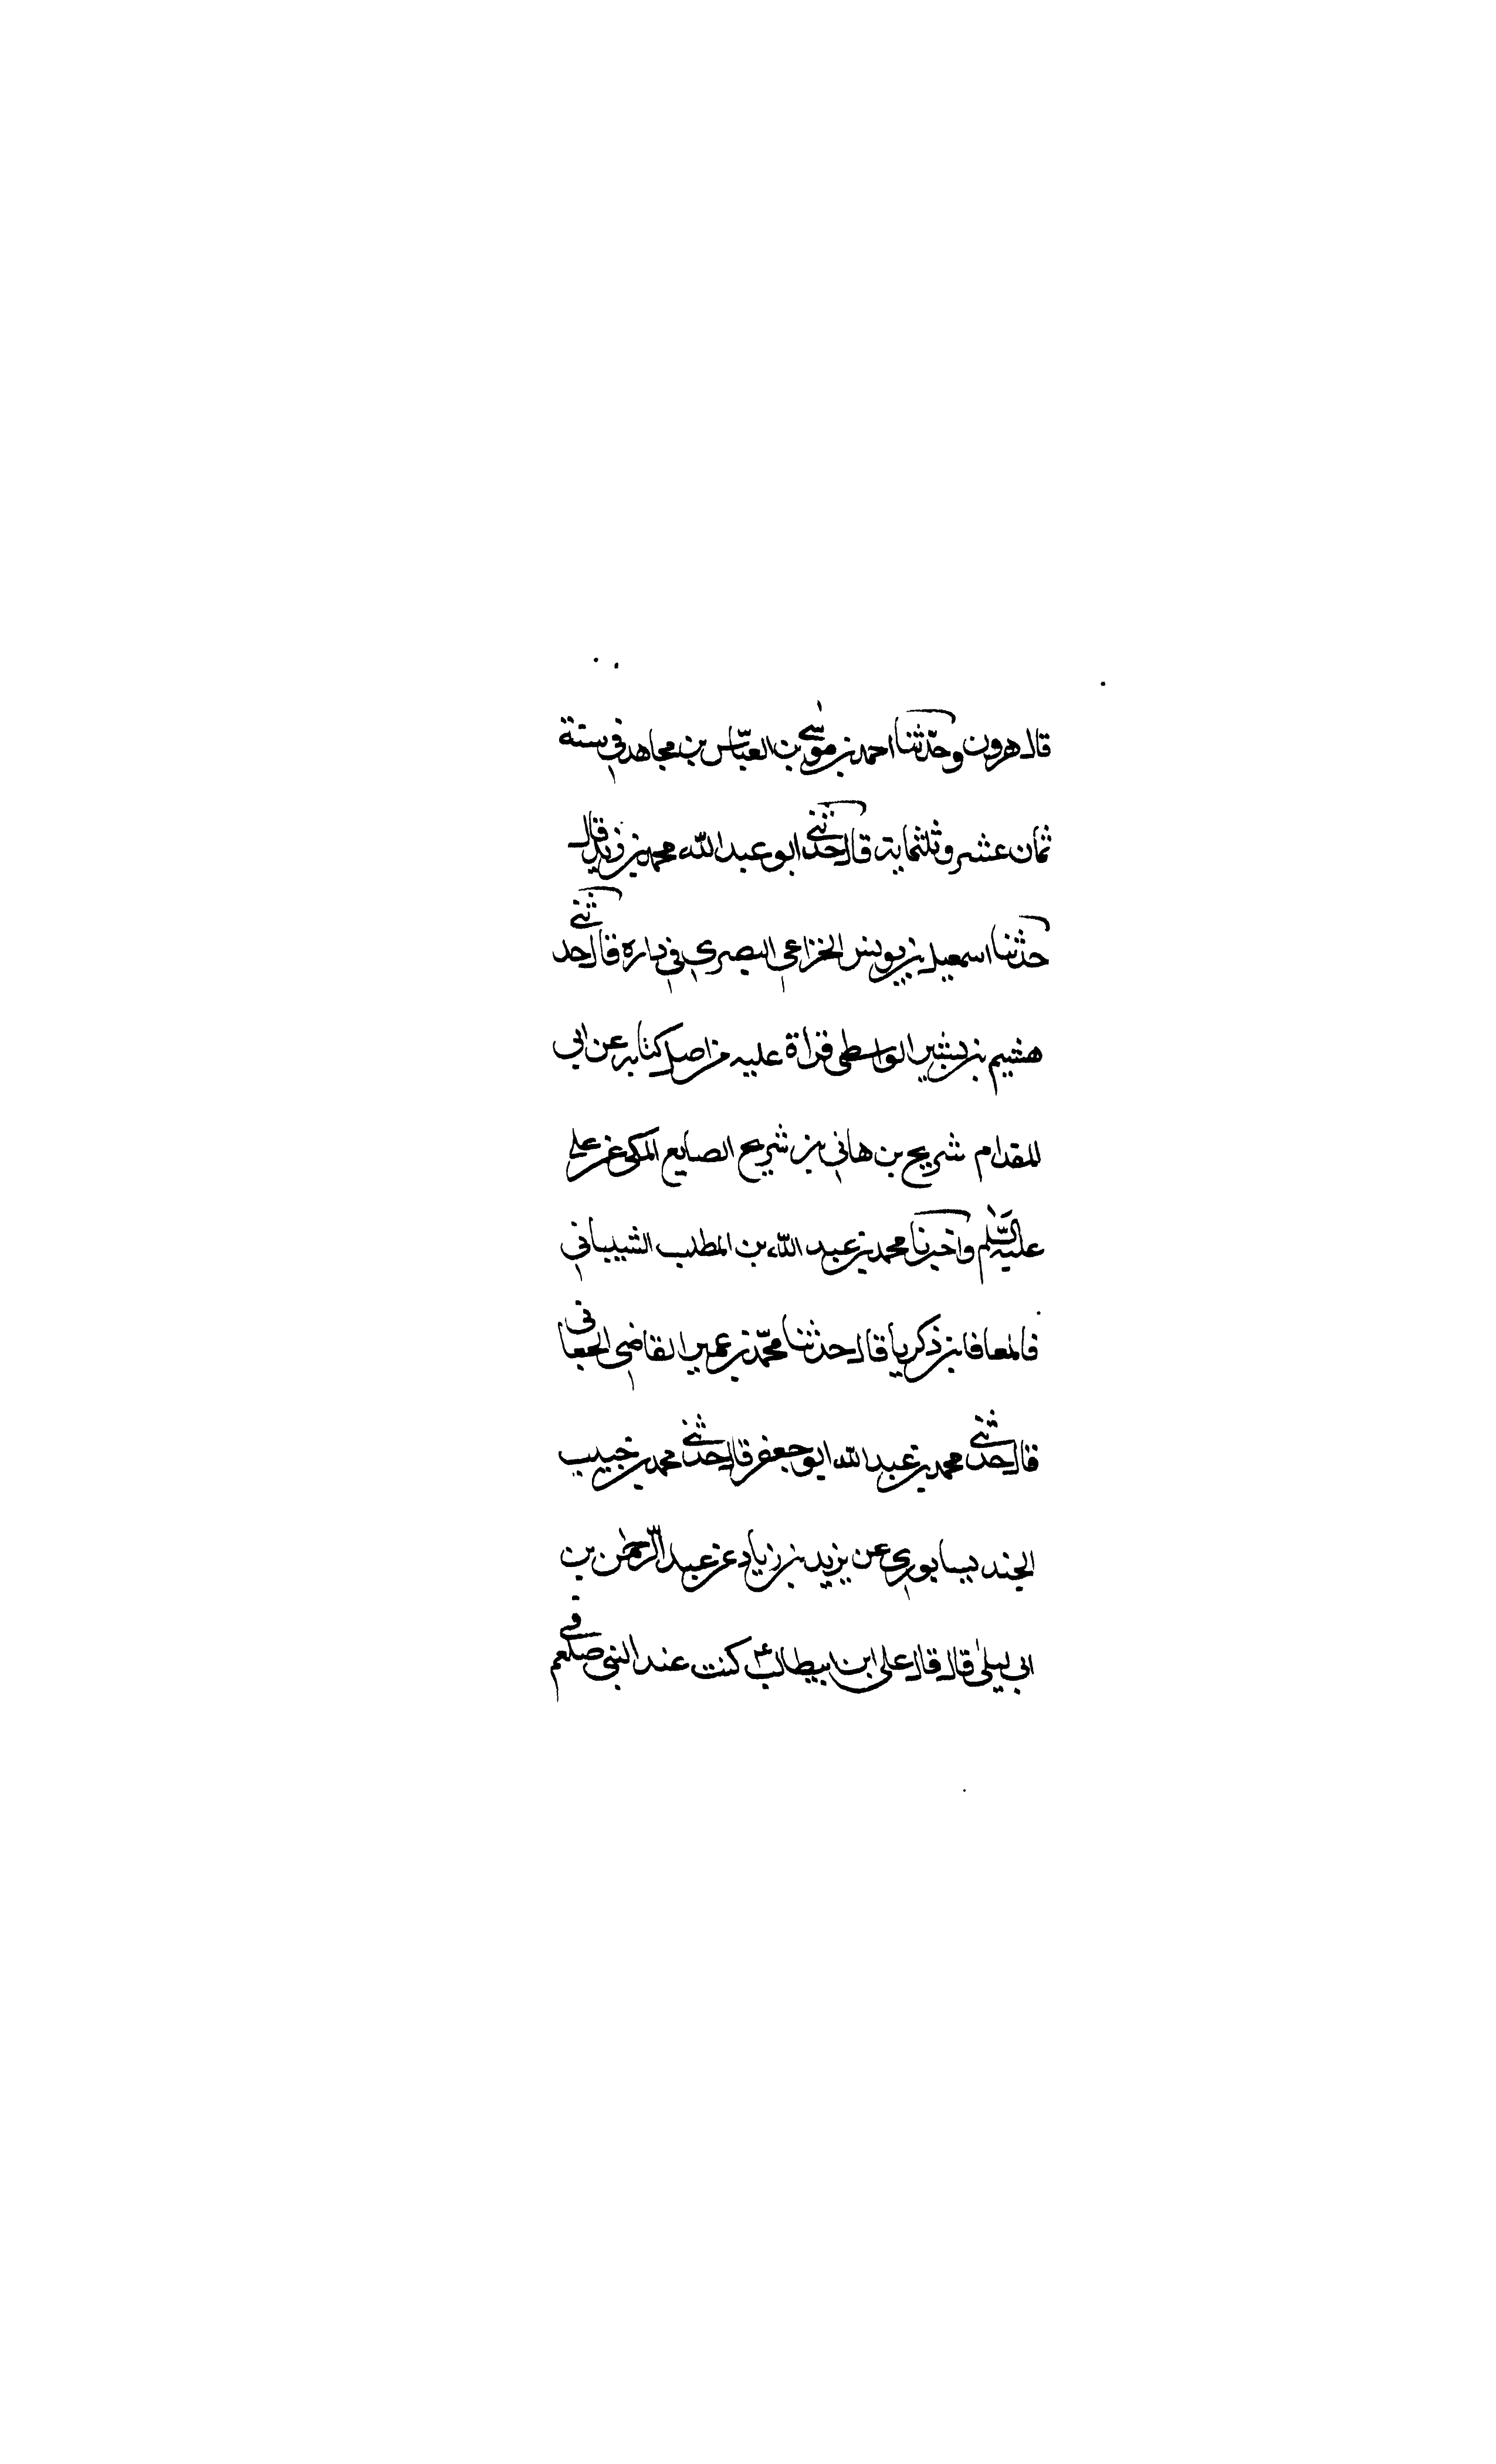 قال هرون وحدّثنا احمد بن موسٰى بن العبّاس بن مجاهد في سنة
ثمان عشر وثلثماية قال حدثني ابو عبد الله محمد بن زيد قال
حدثنا اسمعيل بن يونس الخزاعي البصري في داره قال حدثني
هشيم بن بشير الواسطي قراة عليه من اصل كتابه عن ابي
المقدام شريح بن هاني بن شريح الصايغ المكي عن علي
عليه السّلم واخبرنا محمد بن عبد الله بن المطلب الشيباني
والمعافا بن زكريا قال حدثنا محمّد بن عمير القاضي
قال حدثني محمد بن عبد الله ابو جعفر قال حدثني محمد بن حبيب
الجند يسابوري عن يزيد بن زياد عن عبد الرّحمٰن بن
ابي ليلى قال قال علي ابن ابيطالبؑ كنت عند النبي صلعم في